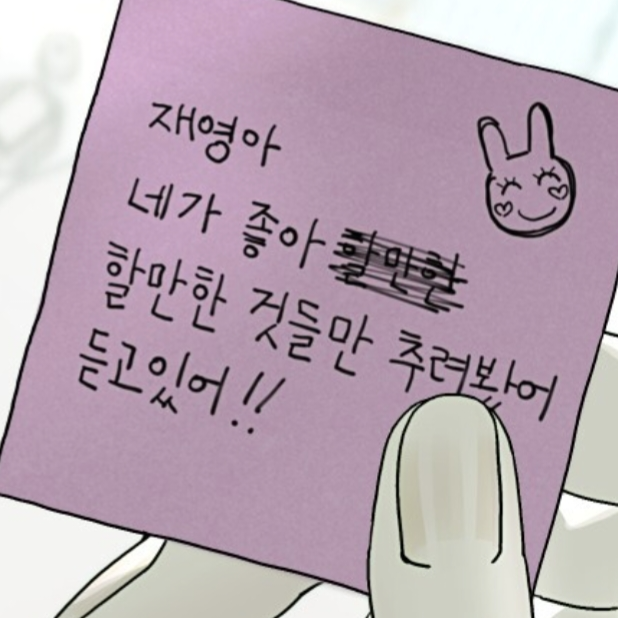 재영아
네가 좋아 할만한
할만한 것들만 추려봤어
듣고있어!!